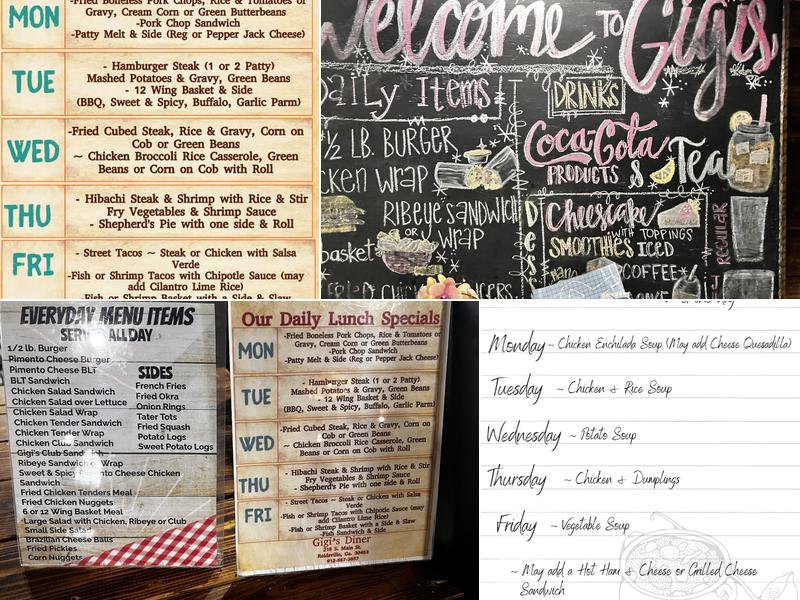 MON
-Fried Boneless Pork Chops, Rice & Tomatoes or
Gravy, Cream Corn or Green Butterbeans
-Pork Chop Sandwich
-Patty Melt & Side (Reg or Pepper Jack Cheese)
TUE
- Hamburger Steak (1 or 2 Patty)
Mashed Potatoes & Gravy, Green Beans
- 12 Wing Basket & Side
(BBQ, Sweet & Spicy, Buffalo, Garlic Parm)
WED
-Fried Cubed Steak, Rice & Gravy, Corn on
Cob or Green Beans
~ Chicken Broccoli Rice Casserole, Green
Beans or Corn on Cob with Roll
THU
- Hibachi Steak & Shrimp with Rice & Stir
Fry Vegetables & Shrimp Sauce
- Shepherd's Pie with one side & Roll
FRI
- Street Tacos ~ Steak or Chicken with Salsa
Verde
-Fish or Shrimp Tacos with Chipotle Sauce (may
add Cilantro Lime Rice)
-Fish or Shrimp Basket with a Side & Slaw
Welcome TO Gigi's
Daily Items
1/2 LB. BURGER
cken WRAP
RiBeye SANDWICH
OR WRAP
basket
DRINKS
Coca-Cola
PRODUCTS & Tea
Des
Cheesecake
WITH TOPPINGS
SMOOTHIES ICED
COFFEE
REGULAR
EVERYDAY MENU ITEMS
SERVED ALL DAY
1/2 lb. Burger
Pimento Cheese Burger
Pimento Cheese BLT
BLT Sandwich
Chicken Salad Sandwich
Chicken Salad over Lettuce
Chicken Salad Wrap
Chicken Tender Sandwich
Chicken Tender Wrap
Chicken Club Sandwich
Gigi's Club Sandwich
Ribeye Sandwich or Wrap
Sweet & Spicy Pimento Cheese Chicken
Sandwich
Fried Chicken Tenders Meal
Fried Chicken Nuggets
6 or 12 Wing Basket Meal
Large Salad with Chicken, Ribeye or Club
Small Side Salad
Brazilian Cheese Balls
Fried Pickles
Corn Nuggets
SIDES
French Fries
Fried Okra
Onion Rings
Tater Tots
Fried Squash
Potato Logs
Sweet Potato Logs
Our Daily Lunch Specials
MON
-Fried Boneless Pork Chops, Rice & Tomatoes or
Gravy, Cream Corn or Green Butterbeans
-Pork Chop Sandwich
-Patty Melt & Side (Reg or Pepper Jack Cheese)
TUE
- Hamburger Steak (1 or 2 Patty)
Mashed Potatoes & Gravy, Green Beans
- 12 Wing Basket & Side
(BBQ, Sweet & Spicy, Buffalo, Garlic Parm)
WED
-Fried Cubed Steak, Rice & Gravy, Corn on
Cob or Green Beans
~ Chicken Broccoli Rice Casserole, Green
Beans or Corn on Cob with Roll
THU
- Hibachi Steak & Shrimp with Rice & Stir
Fry Vegetables & Shrimp Sauce
- Shepherd's Pie with one side & Roll
FRI
- Street Tacos ~ Steak or Chicken with Salsa
Verde
-Fish or Shrimp Tacos with Chipotle Sauce (may
add Cilantro Lime Rice)
-Fish or Shrimp Basket with a Side & Slaw
Gigi's Diner
218 S. Main St.
Reidsville, Ga. 30453
912-557-3557
Monday ~ Chicken Enchilada Soup (May add Cheese Quesadilla)
Tuesday ~ Chicken & Rice Soup
Wednesday ~ Potato Soup
Thursday ~ Chicken & Dumplings
Friday ~ Vegetable Soup
~ May add a Hot Ham & Cheese or Grilled Cheese
Sandwich